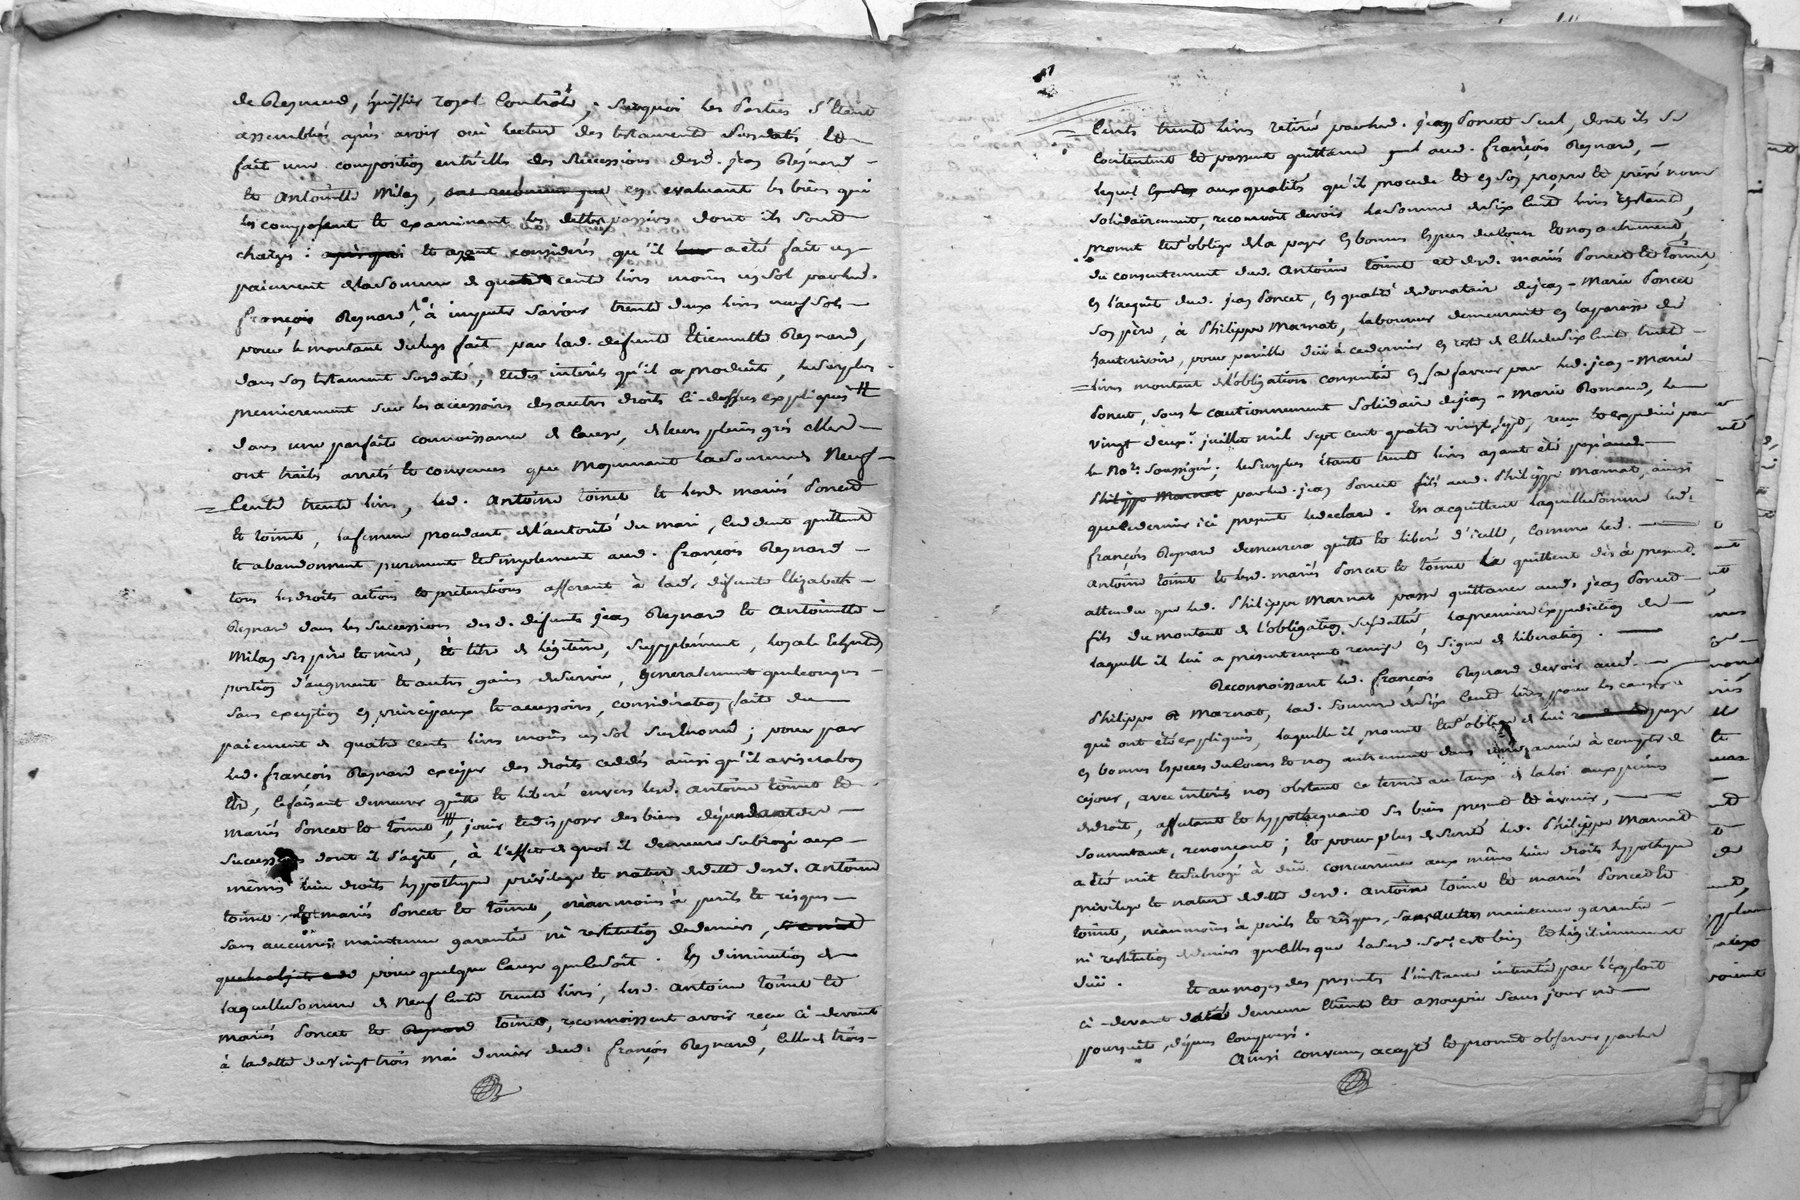 de Reynard, huissier royal Controlé ; surquoi les parties s'étant
assemblées après avoir oui lecture des testaments susdatés et
fait une composition entr'elles des successions desd. jean Reynard
et Antoinette Milan, en evaluant les biens qui
les composent et examinant les dettes passives dont ils sont
chargés : et ayant considéré qu'il a été fait un
paiement de la somme de quatre cents livres moins un sol par led.
françois Reynard, à imputer savoir trente deux livres neuf sols
pour le montant du legs fait par lad. defunte Etiennette Reynard,
dans son testament susdaté, et des interêts qu'il a produits, le surplus
premierement sur les accessoires des autres droits ci-dessus expliqués #
dans une parfaite connoissance de cause, de leurs pleins grés elles
ont traité arrêté et convenus que moyennant la somme de Neuf
Cents trente livres, led. Antoine toinet et lesd. mariés Poncet
et toinet, la femme procedant de l'autorité du mari, cedent quittent
et abandonnent purement et simplement aud. françois Reynard
tous les droits actions et prétentions afferant à lad. defunte Elizabeth
Reynard dans les successions desd. defunts jean Reynard et Antoinette
Milan ses père et mère, à titre de légitime, supplément,
portion d'augment et autres gains de survie, généralement quelconques
sans exception en principaux et accessoires, considération faite du
paiement de quatre cents livres moins un sol susénoncé ; pour par
led. françois Reynard exiger des droits cedés ainsi qu'il avisera bon
être, le faisant demeurer quitte et liberé envers lesd. antoine toinet et
mariés Poncet et toinet #, jouir et disposer des biens dépendants des
successions dont il s'agit, à l'effet de quoi il demeure subrogé aux
mêmes lieu droits hypotheque privilege et nature de dette desd. Antoine
toinet, et mariés Poncet et toinet, néanmoins à perils et risques
sans aucune maintenue garantie ni restitution de deniers,
pour quelque cause que ce soit. En diminution de
laquelle somme de Neuf cents trente livres, lesd. antoine toinet et
mariés Poncet et toinet, reconnoissent avoir reçu ci-devant
à la datte du vingt trois mai dernier dud. françois Reynard, celle de trois
Cents trente livres retirée par led. jean Poncet seul, dont ils se
contentent et passent quittance aud. françois Reynard,
lequel aux qualités qu'il procede et en son propre et privé nom
solidairement, reconnoit devoir la somme de six cents livres restante,
promet et s'oblige de la payer en bonnes especes du cours et non autrement,
du consentement dud. Antoine toinet et desd. mariés Poncet et toinet,
en l'acquit dud. jean Poncet, en qualité de donataire de jean-Marie Poncet
son père, à Philippe Marnat, laboureur demeurant en la paroisse de
hauterivoire, pour pareille düe à ce dernier en reste de celle de six cents trente
livres montant de l'obligation consentie en sa faveur par led. jean-Marie
Poncet, sous le cautionnement solidaire de jean-Marie Romand, le
vingt deux juillet mil sept cent quatre vingt sept, reçue et expediée par
le No.re soussigné ; le surplus étant trente livres ayant été payé aud.
Philippe Marnat par led. jean Poncet fils aud. Philippe Marnat, ainsi
que ce dernier ici present le declare. En acquittant laquelle somme led.
françois Reynard demeurera quitte et liberé d'icelle, comme led.
antoine toinet et lesd. mariés Poncet et toinet la quittent dès à present,
attendu que led. Philippe Marnat passe quittance aud. jean Poncet
fils du montant de l'obligation susdatée, la premiere expedition de
laquelle il lui a presentement remise en signe de liberation.
Reconnoissant led. françois Reynard devoir aud.
Philippe Marnat, lad. somme de six cents livres pour les causes
qui ont été expliquées, laquelle il promet et s'oblige de lui payer
en bonnes especes du cours et non autrement dans une année à compter de
cejour, avec interêts non obstant ce terme au taux de la loi aux peines
de droit, affectant et hypothequant ses biens present et à venir,
soumettant, renonçant ; et pour plus de sureté led. Philippe Marnat
a été mis et subrogé à due concurrence aux mêmes lieu droits hypotheque
privilege et nature de dette desd. Antoine toinet et mariés Poncet et
toinet, néanmoins à perils et risques, sans autre maintenue garantie
ni restitution de deniers que celles que lad. som. est bien et légitimement
düe. Et au moyen des presentes l'instance intentée par l'exploit
ci-devant daté demeure éteinte et assoupie sans jour ne
poursuite, dépens compensés.
Ainsi convenu, accepté et promis observer par les